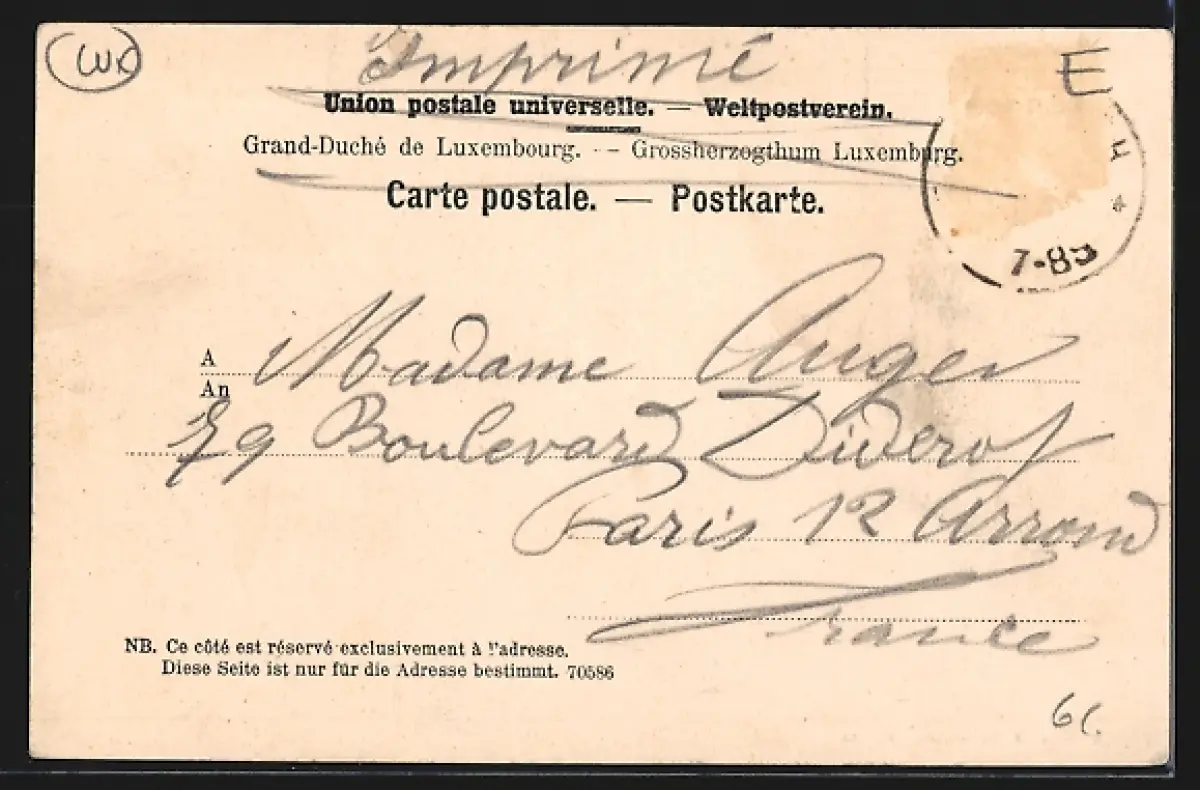 LUX
Imprimé
E
Union postale universelle. — Weltpostverein.
Grand-Duché de Luxembourg. — Grossherzogthum Luxemburg.
Carte postale. — Postkarte.
7-85
A Madame Auger
An
29 Boulevard Diderot
Paris 12 Arrond
France
NB. Ce côté est réservé exclusivement à l'adresse.
Diese Seite ist nur für die Adresse bestimmt. 70586